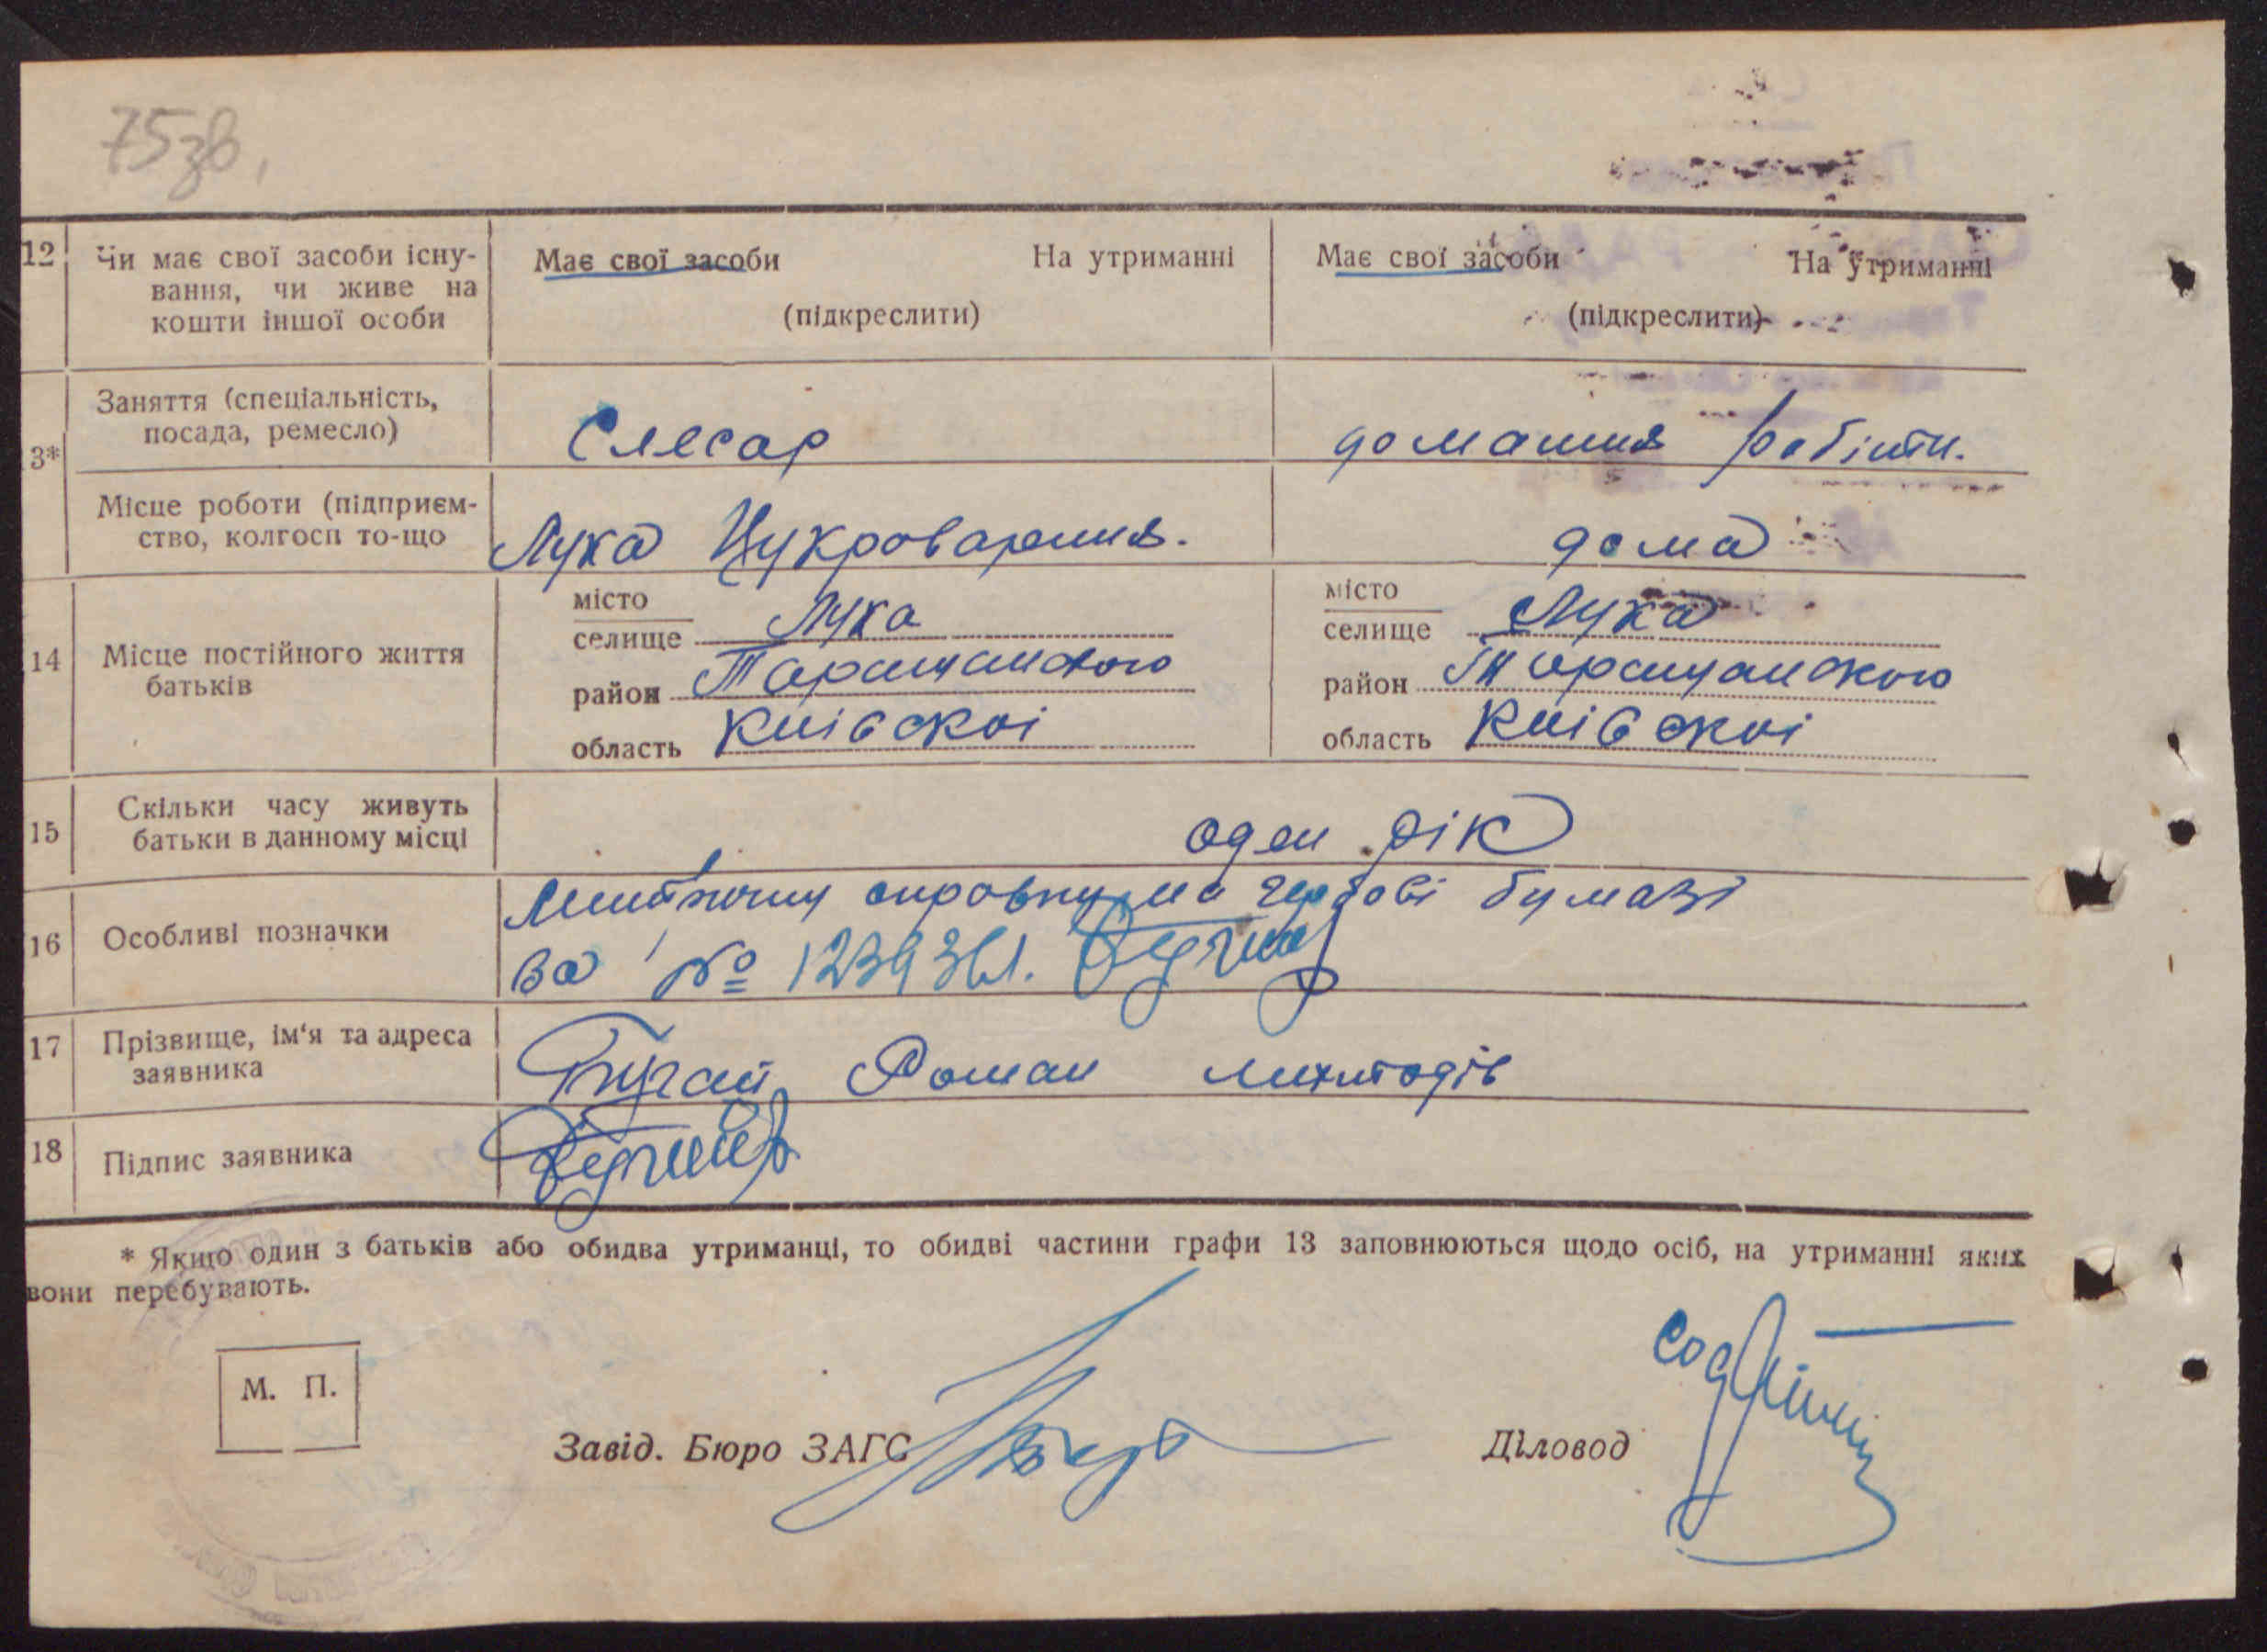 75зв.
12 Чи має свої засоби існу- Має свої засоби На утриманні Має свої засоби На утриманні
вання, чи живе на
кошти іншої особи (підкреслити) (підкреслити)
3* Заняття (спеціальність,
посада, ремесло) Слесар домашня робіття.
Місце роботи (підприєм-
ство, колгосп то-що Лука Цукроварния. дома
14 Місце постійного життя
батьків
місто місто
селище Лука селище Лука
район Таращанского район Таращанского
область Киівскоі область Киівскоі
15 Скільки часу живуть
батьки в данному місці оден рік
16 Особливі позначки справку на гербові бумазі
за №
17 Прізвище, ім‘я та адреса
заявника Бугай Роман
18 Підпис заявника
* Якщо один з батьків або обидва утриманці, то обидві частини графи 13 заповнюються щодо осіб, на утриманні яких
вони перебувають.
М. П.
Завід. Бюро ЗАГС Діловод